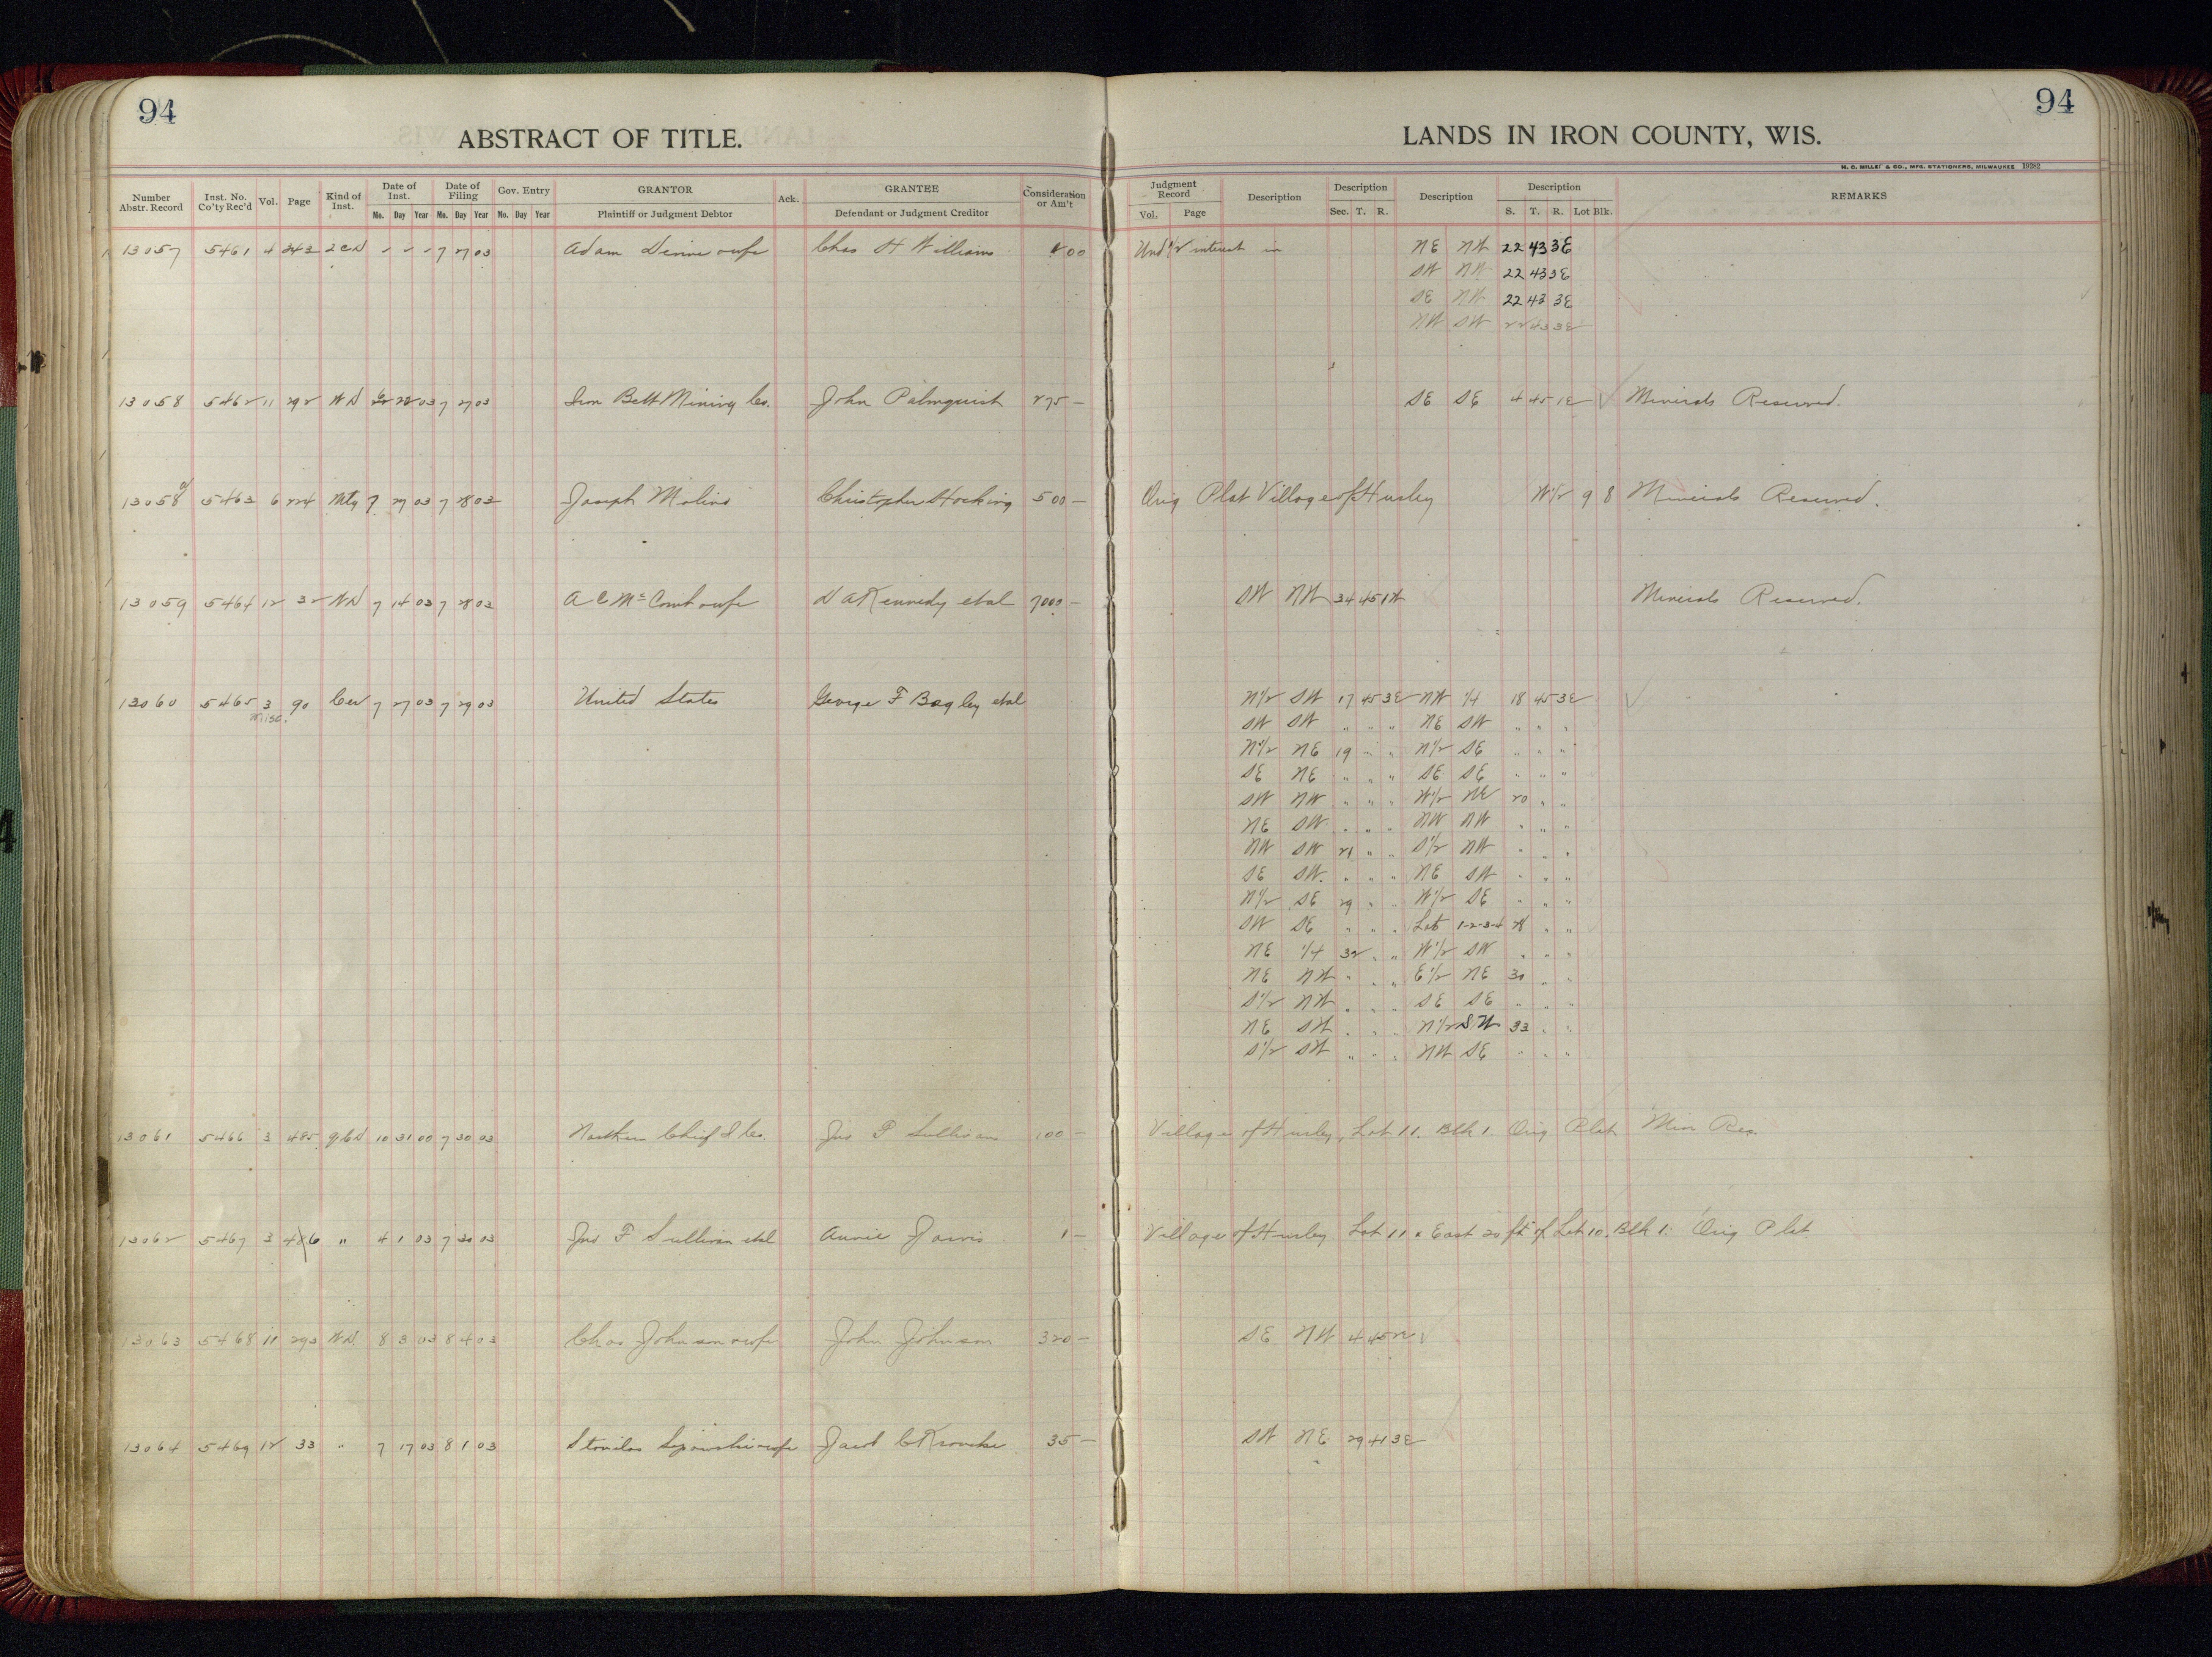 94
ABSTRACT OF TITLE.
Number Abstr. Record Inst. No. Co'ty Rec'd Vol. Page Kind of Inst. Date of Inst. Date of Filing Gov. Entry GRANTOR Ack. GRANTEE Consideration or Am't
Mo. Day Year Mo. Day Year Mo. Day Year Plaintiff or Judgment Debtor Defendant or Judgment Creditor
94
LANDS IN IRON COUNTY, WIS.
H. C. MILLER & CO., MFG. STATIONERS, MILWAUKEE 19282
Judgment Record Description Description Description Description REMARKS
Vol. Page Sec. T. R. S. T. R. Lot Blk.
13057 5461 4 243 2CD " " " 7 27 03 Adam & wife Chas H Williams Und 1/2 interest in NE NW 22 43 3E
SW NW 22 43 3E
SE NW 22 43 3E
NW SW 22 43 3E
13058 5462 11 292 WD 22 03 7 27 03 Iron Belt Mining Co. John Palmquist 275 — SE SE 4 45 1E Minerals Reserved.
13058a 5463 6 224 Mtg 7 27 03 7 28 03 Joseph Molino Christopher Hocking 500 — Orig Plat Village of Hurley W1/2 9 8 Minerals Reserved.
13059 5464 12 32 WD 7 14 03 7 28 03 A C McComb & wife D A Kennedy etal 7000 — SW NW 34 45 1W Minerals Reserved.
13060 5465 3 90 Cer 7 27 03 7 29 03 United States George F Bagley etal N1/2 SW 17 45 3E NW 1/4 18 45 3E
Misc. SW SW " " " NE SW " " "
N1/2 NE 19 " " N1/2 SE " " "
SE NE " " " SE SE " " "
SW NW " " " W1/2 NE 20 " "
NE SW " " " NW NW " " "
NW SW 21 " " S1/2 NW " " "
SE SW. " " " NE SW " " "
N1/2 SE 29 " " W1/2 SE " " "
SW SE " " " Lot 1-2-3-4 28 " "
NE 1/4 32 " " W1/2 SW " " "
NE NW " " " E1/2 NE 30 " "
S1/2 NW " " " SE SE " " "
NE SW " " " N1/2 SW 33 " "
S1/2 SW " " " NW SE " " "
13061 5466 3 485 QCD 10 31 00 7 30 03 Northern Chief I Co. Jno F Sullivan 100 — Village of Hurley, Lot 11. Blk 1. Orig Plat Min Res.
13062 5467 3 486 " 4 1 03 7 30 03 Jno F Sullivan etal Annie Jarvis 1 — Village of Hurley Lot 11 & East 20 ft of Lot 10, Blk 1. Orig Plat.
13063 5468 11 293 WD. 8 3 03 8 4 03 Chas Johnson & wife John Johnson 320 — SE NW 4 45
13064 5469 12 33 " 7 17 03 8 1 03 & wife Jacob C 35 — SW NE 29 41 3E